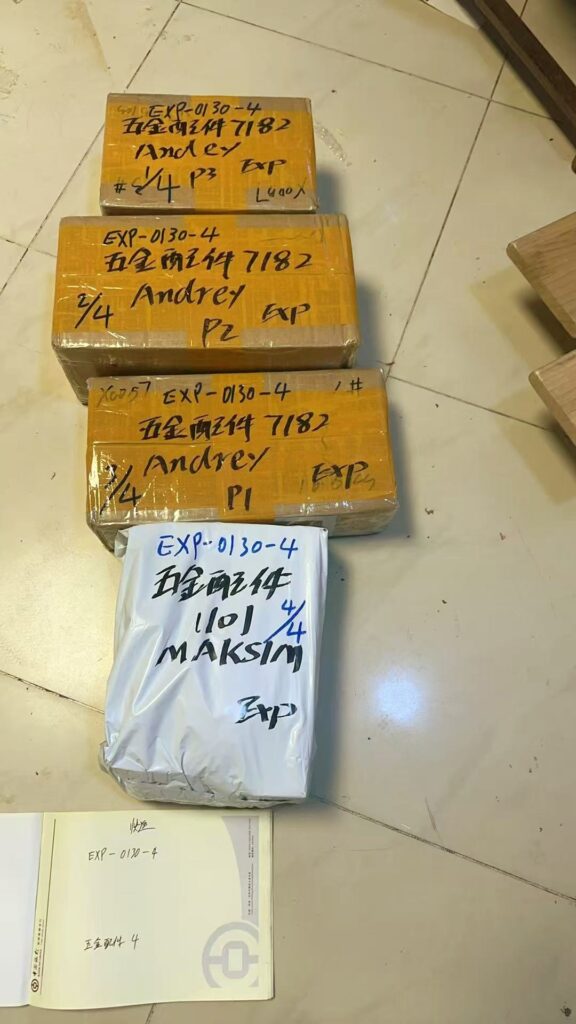 EXP-0130-4
五金配件7182
Andrey
1/4 P3 Exp
EXP-0130-4
五金配件7182
Andrey
2/4 P2 EXP
X0057 EXP-0130-4 1#
五金配件7182
Andrey
3/4 P1 EXP
EXP-0130-4
五金配件
1101 4/4
MAKSIM
Exp
快递
EXP-0130-4
五金配件 4
中国银行